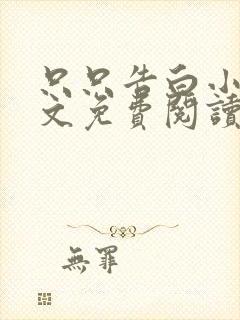 只只告白小
文免費閱讀
無罪